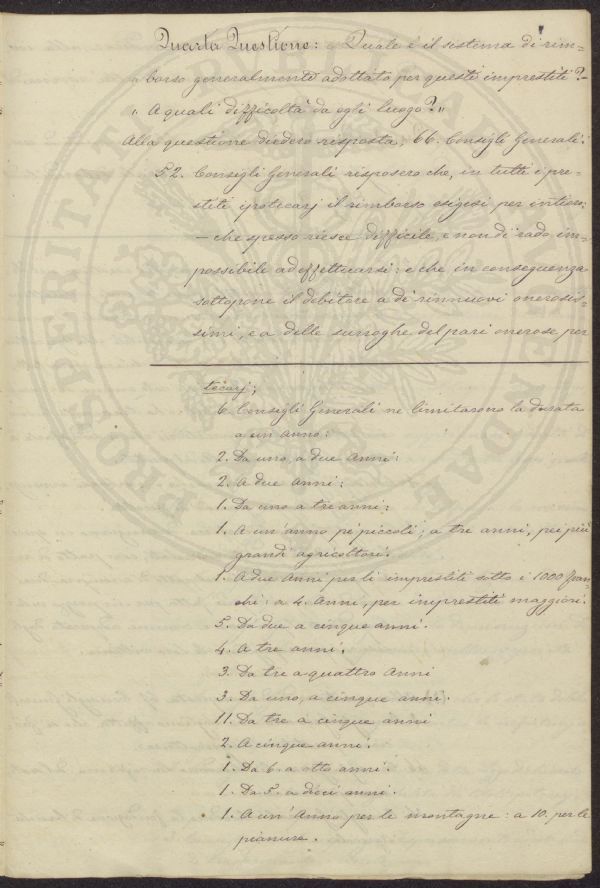 Quarta Questione: „ Quale è il sistema di rim=
„ borso generalmente adottato per questi imprestiti?
„ A quali difficoltà da egli luogo?"
Alla questione diedero risposta, 66. Consigli Generali:
52. Consigli Generali risposero che, in tutti i pre=
stiti ipotecarj il rimborso esigesi per intiero;
— che spesso riesce difficile, e non di rado im=
possibile ad effettuarsi: e che in conseguenza
sottopone il debitore a di rinnuovi onerosis=
simi, e a delle surroghe del pari onerose per
tecarj;
6. Consigli Generali ne limitarono la durata
a un anno:
2. Da uno, a due anni:
2. A due anni:
1. Da uno a tre anni:
1. A un'anno pe' piccoli; a tre anni, pei più
grandi agricoltori.
1. A due anni per li imprestiti sotto i 1000 fran=
chi: a 4. anni, per imprestiti maggiori.
5. Da due a cinque anni.
4. A tre anni.
3. Da tre a quattro anni
3. Da uno, a cinque anni.
11. Da tre a cinque anni
2. A cinque anni.
1. Da 6. a otto anni.
1. Da 5. a dieci anni.
1. A un'Anno per le montagne: a 10. per le
pianure.
PROSPERITATI PUBLICAE AUGENDAE